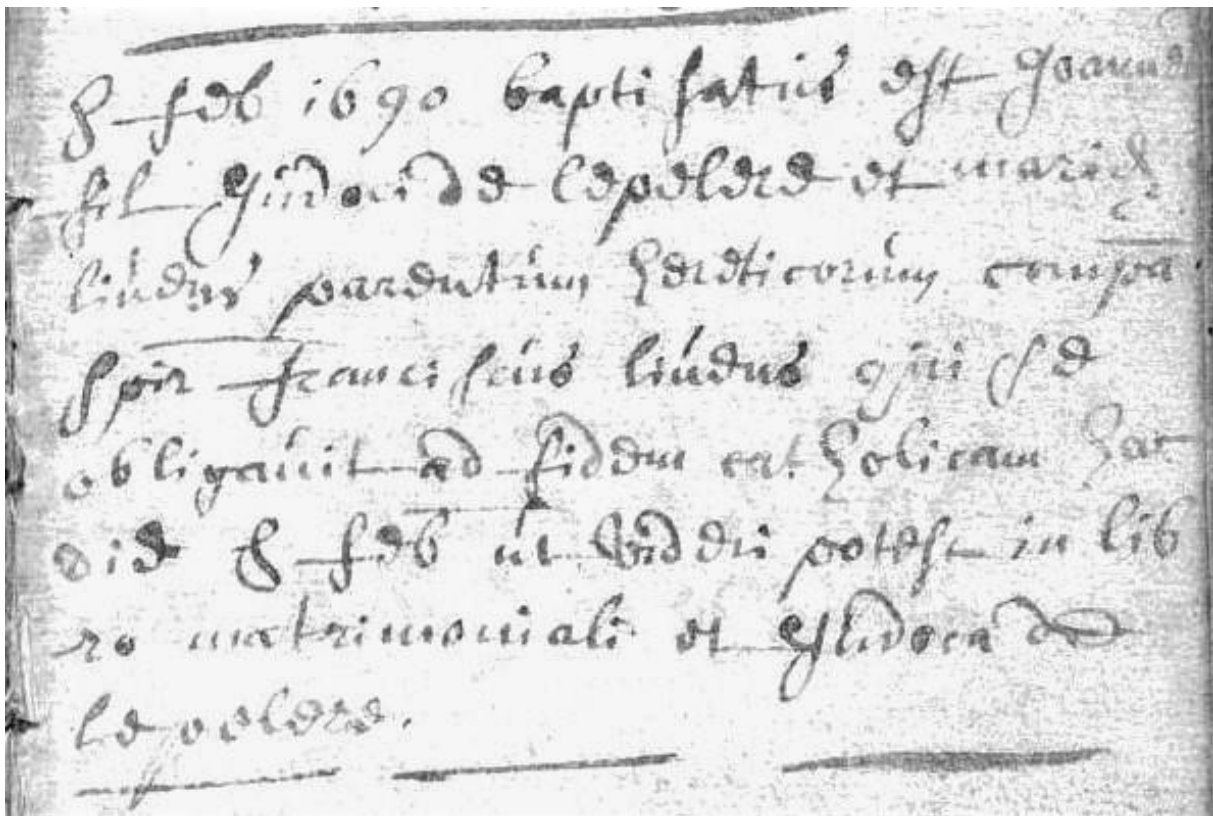 8 feb 1690 baptisatus est Joannes
fil Judoci de lepelere et mariæ
lindns parentum hereticorum compa
spir franciscus lindns qui se
obligavit ad fidem catholicam hac
die 8 feb ut videri potest in lib
ro matrimoniali et Judoca de
lepelere.